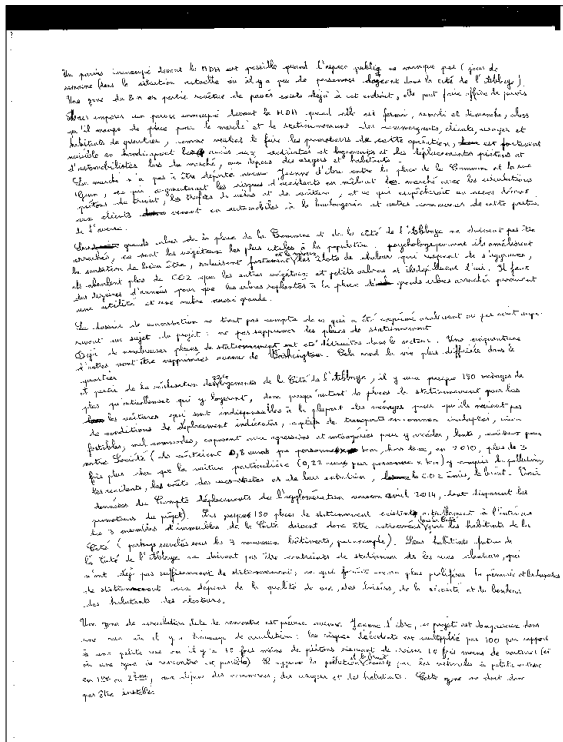 Un parvis inoccupé devant la MDH est possible quand l'espace public ne manque pas (jours de
semaine) dans la situation actuelle où il y a peu de personnes logeant dans la cité de l'Abbaye).
Une zone du 8 m en partie revêtue de pavés existe déjà à cet endroit, elle peut faire office de parvis
imposer un parvis inoccupé devant la MDH quand elle est fermée, samedi et dimanche, alors
qu'il manque de place pour le marché et le stationnement des commerçants, clients, usagers et
habitants du quartier, comme veulent le faire les promoteurs de cette opération, est fortement
nuisible en handicapant accès aux résidences et logements et les déplacements piétons et
d'automobilistes lors du marché, aux dépens des usagers et habitants.
Le marché n'a pas à être déporté avenue Jeanne d'Arc entre la place de la Commune et la rue
, ce qui augmenterait les risques d'accidents en mêlant le marché avec les circulations
piétons de transit, les trafics de vélos et de voitures, et ce qui empêcherait au moins
aux clients venant en automobiles à la boulangerie et autres commerces de cette partie
de l'avenue.
grands arbres de la place de la Commune et de la cité de l'Abbaye ne doivent pas être
arrachés, ce sont les végétaux les plus utiles à la population : psychologiquement ils améliorent
la sensation de bien être, réduisent fortement les îlots de chaleur qui risquent de s'aggraver,
ils absorbent plus de CO2 que les autres végétaux et petits arbres et ils dépolluent l'air. Il faut
des dizaines d'années pour que les arbres replantés à la place grands arbres arrachés procurent
une utilité et une ombre aussi grande.
Le dossier de concertation ne tient pas compte de ce qui a été exprimé oralement ou par écrit
au sujet du projet : ne pas supprimer des places de stationnement
Déjà de nombreuses places de stationnement ont été détruites dans le secteur. Une cinquantaine
d'autres vont être supprimées avenue de Washington. Cela rend la vie plus difficile dans le
quartier
à partir de la réalisation de logements de la Cité de l'Abbaye, il y aura presque 150 ménages de
plus qu'actuellement qui y logeront, donc presque autant de places de stationnement pour
les voitures qui sont indispensables à la plupart des ménages parce qu'ils n'auront pas
de conditions de déplacement indiquées, captifs de transports en commun inadaptés, incon-
fortables, mal commodes, exposant aux agressions et intempéries pour y accéder, lents, coûteux pour
notre Société (ils coûtaient 0,8 euros par personne x km, hors taxe, en 2010, plus de 3
fois plus cher que la voiture particulière (0,22 euros par personne x km) y compris la pollution,
les accidents, les coûts des constructions et de leur entretien, le CO2 émis, le bruit. Voir
données du Compte déplacements de l'agglomération version avril 2014, dont disposent les
promoteurs du projet). Les presque 150 places de stationnement existantes actuellement à l'intérieur
les 3 ensembles d'immeubles de la Cité doivent donc être pour les habitants de la
Cité (parkings sous les 3 nouveaux bâtiments, par exemple). Les habitants futurs de
la Cité de l'Abbaye ne doivent pas être contraints de stationner dans les rues alentours, qui
n'ont déjà pas suffisamment de stationnement, ce qui ferait encore plus proliférer la pénurie
de stationnement aux dépens de la qualité de vie, des loisirs, de la sécurité et du bonheur
des habitants des alentours.
Une zone de circulation dite de rencontre est prévue avenue Jeanne d'Arc, ce projet est dangereux dans
une rue où il y a beaucoup de circulation : les risques d'accidents est multiplié par 100 par rapport
à une petite rue où il y a 10 fois moins de piétons risquant de croiser 10 fois moins de voitures (là
où une zone de rencontre est possible). Il aggrave la pollution causée par les véhicules à petite vitesse
en 1ère ou 2ème, aux dépens des riverains, des usagers et des habitants. Cette zone ne doit donc
pas être installée.